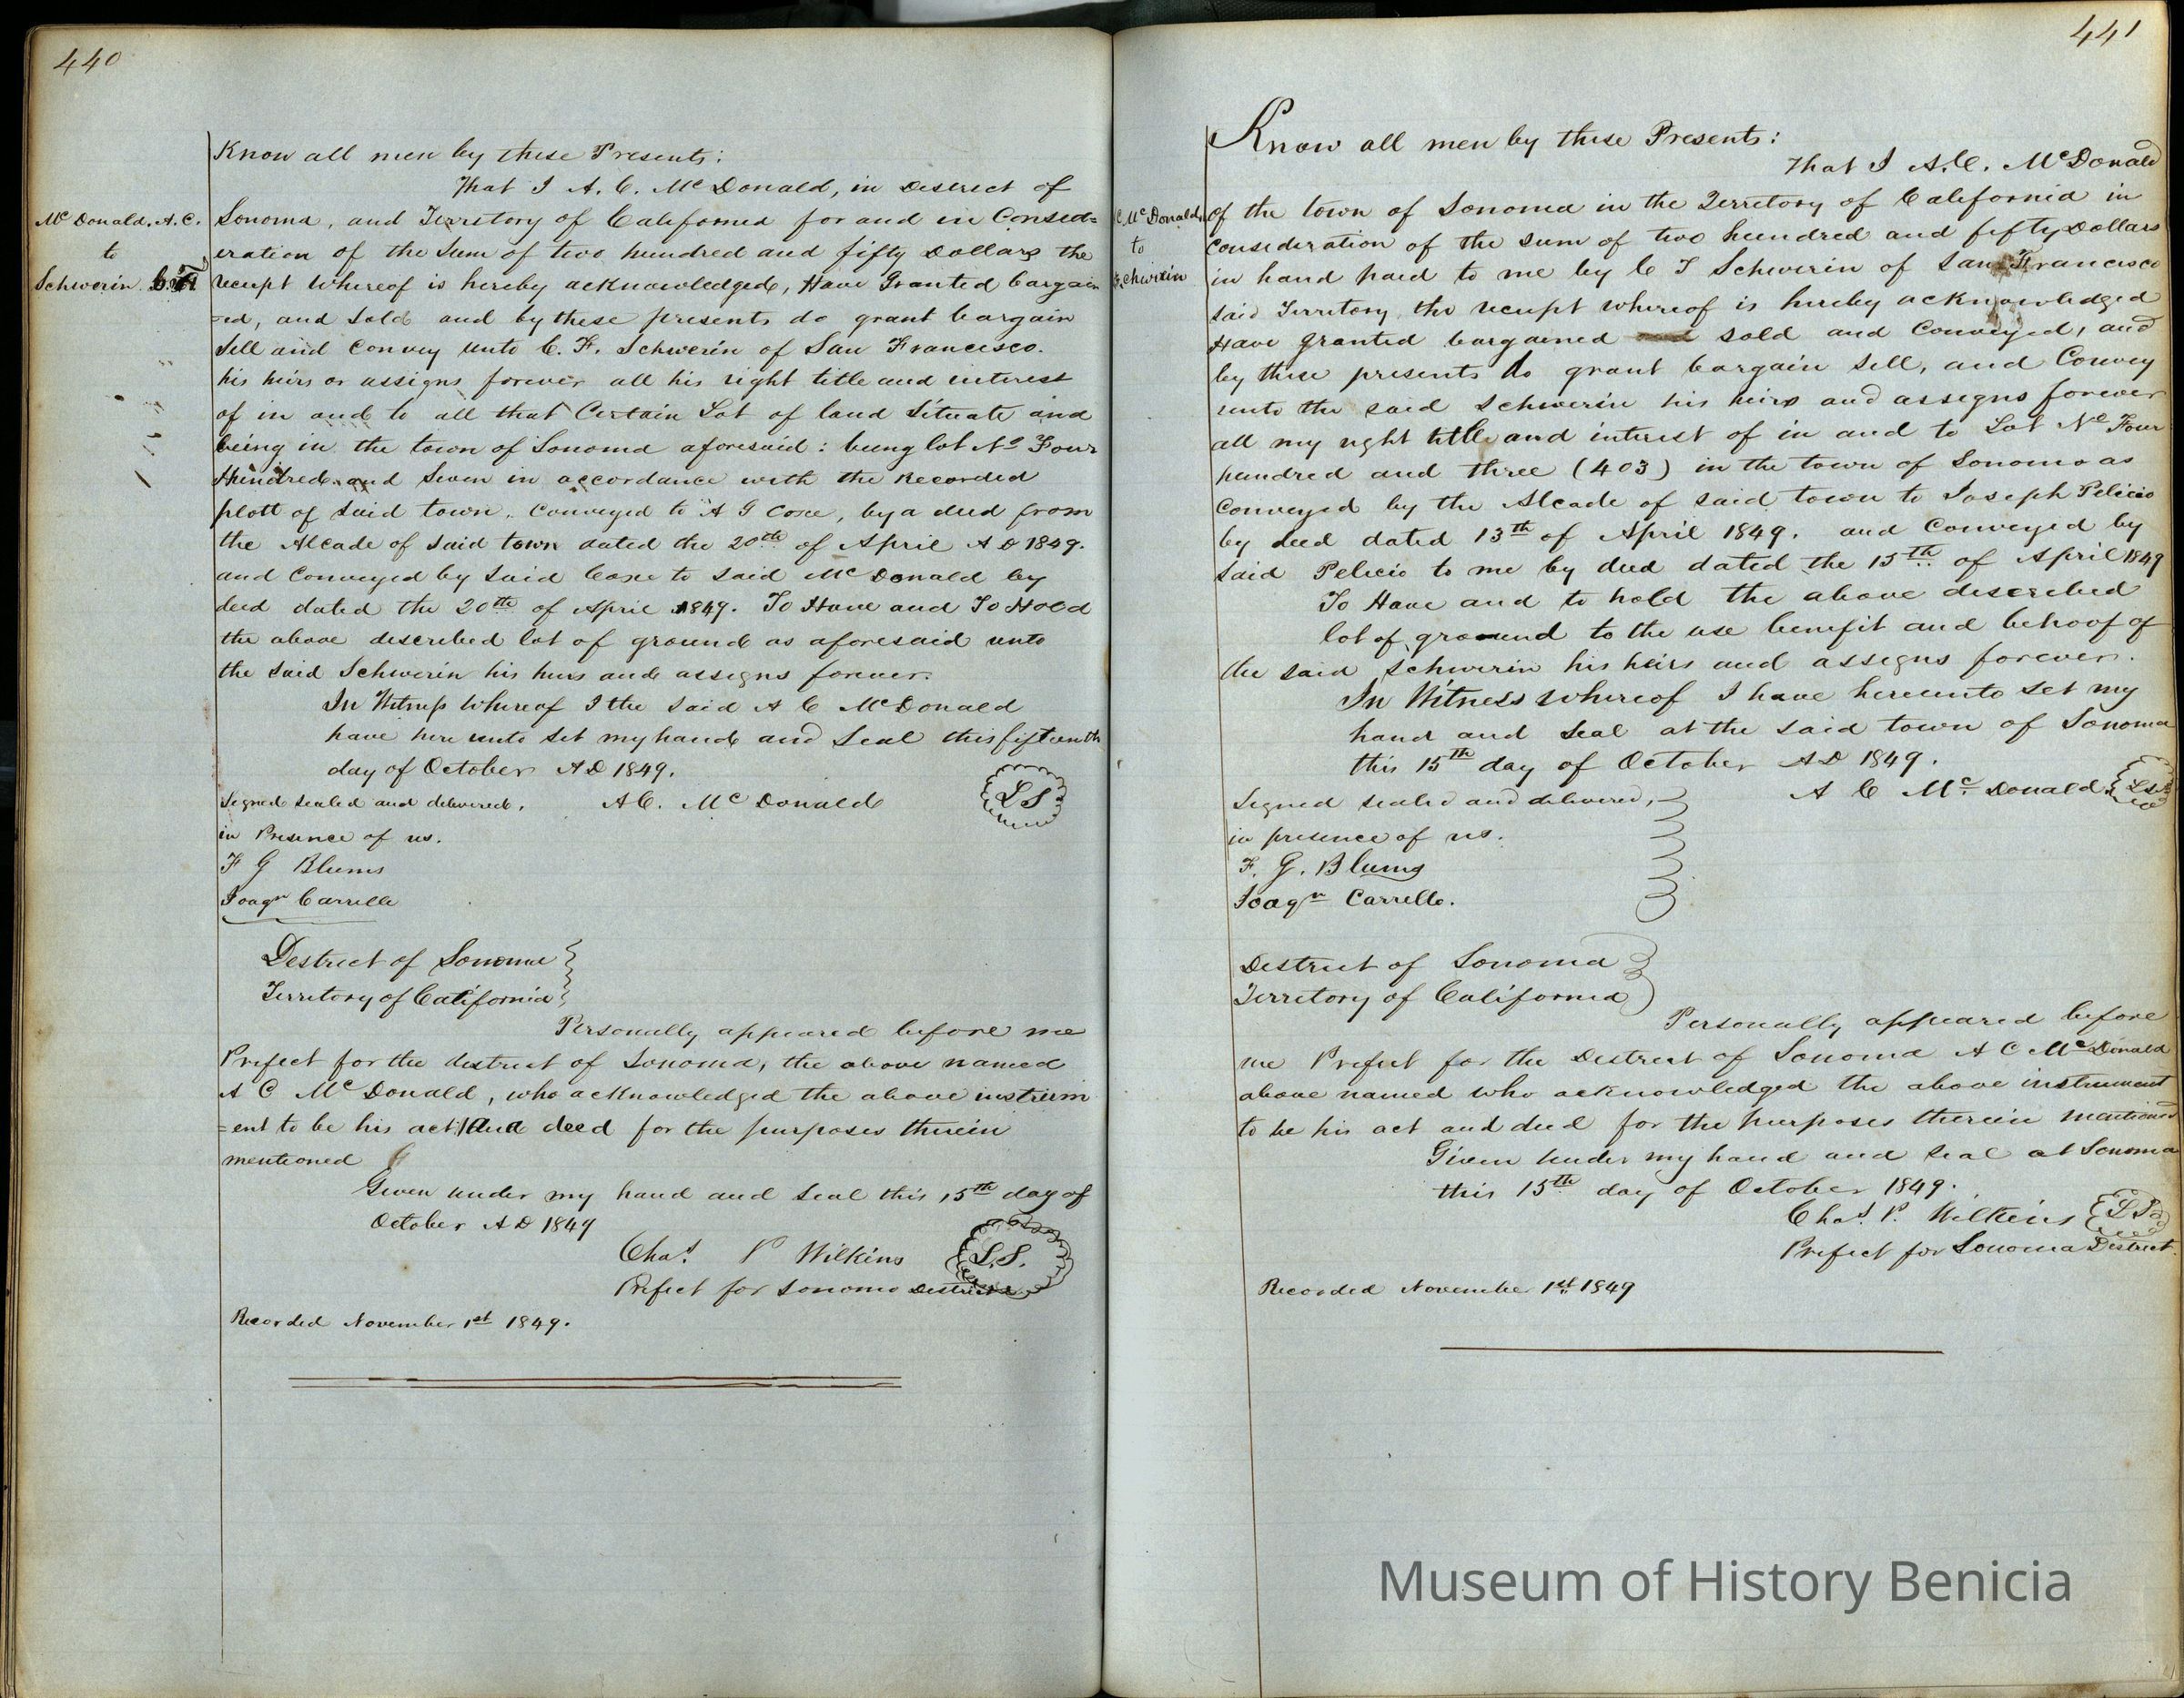 440
Know all men by these Presents:
That I A. C. McDonald, in District of
McDonald. A. C.
to
Schwerin
Sonoma, and Territory of California for and in Consid=
eration of the Sum of two hundred and fifty Dollars the
receipt whereof is hereby acknowledged, Have Granted bargain
=ed, and Sold and by these presents do grant bargain
Sell and Convey unto C. F. Schwerin of San Francisco.
his heirs or assigns forever all his right title and interest
of in and to all that Certain Lot of land Situate and
being in the town of Sonoma aforesaid: being lot No Four
Hundred and Seven in accordance with the Recorded
plott of said town. Conveyed to A G Coxe, by a deed from
the Alcade of said town dated the 20th of April A D 1849.
and Conveyed by said Coxe to said McDonald by
deed dated the 20th of April 1849. To Have and To Hold
the above described lot of ground as aforesaid unto
the said Schwerin his heirs and assigns forever.
In Witness Whereof I the said A C McDonald
have here unto set my hand and Seal this fifteenth
day of October A D 1849.
Signed sealed and delivered. A C. McDonald L S
in Presence of us.
F G Blums
Joaqn Carrillo
District of Sonoma
Territory of California
Personally appeared before me
Prefect for the district of Sonoma, the above named
A C McDonald, who acknowledged the above instrum
=ent to be his act and deed for the purposes therein
mentioned
Given under my hand and Seal this 15th day of
October A D 1849
Chas. P Wilkins L.S.
Prefect for Sonoma District
Recorded November 1st 1849.
441
Know all men by these Presents:
That I A. C. McDonald
C. McDonald
to
Schwerin
of the town of Sonoma in the Territory of California in
consideration of the sum of two hundred and fifty Dollars
in hand paid to me by C F Schwerin of San Francisco
said Territory the receipt whereof is hereby acknowledged
Have granted bargained sold and Conveyed, and
by these presents do grant bargain sell, and Convey
unto the said Schwerin his heirs and assigns forever
all my right title and interest of in and to Lot No Four
hundred and three (403) in the town of Sonoma as
Conveyed by the Alcade of said town to Joseph Pelicio
by deed dated 13th of April 1849. and Conveyed by
said Pelicio to me by deed dated the 15th of April 1849
To Have and to hold the above described
lot of ground to the use benefit and behoof of
the said Schwerin his heirs and assigns forever.
In Witness Whereof I have hereunto set my
hand and seal at the said town of Sonoma
this 15th day of October AD 1849.
A C Mc. Donald LS
Signed sealed and delivered,
in presence of us.
F. G. Blums
Joaqn Carrillo.
District of Sonoma
Territory of California
Personally appeared before
me Prefect for the District of Sonoma A C McDonald
above named who acknowledged the above instrument
to be his act and deed for the purposes therein mentioned
Given under my hand and seal at Sonoma
this 15th day of October 1849.
Chas. P. Wilkins L S
Prefect for Sonoma District.
Recorded November 1st 1849
Museum of History Benicia